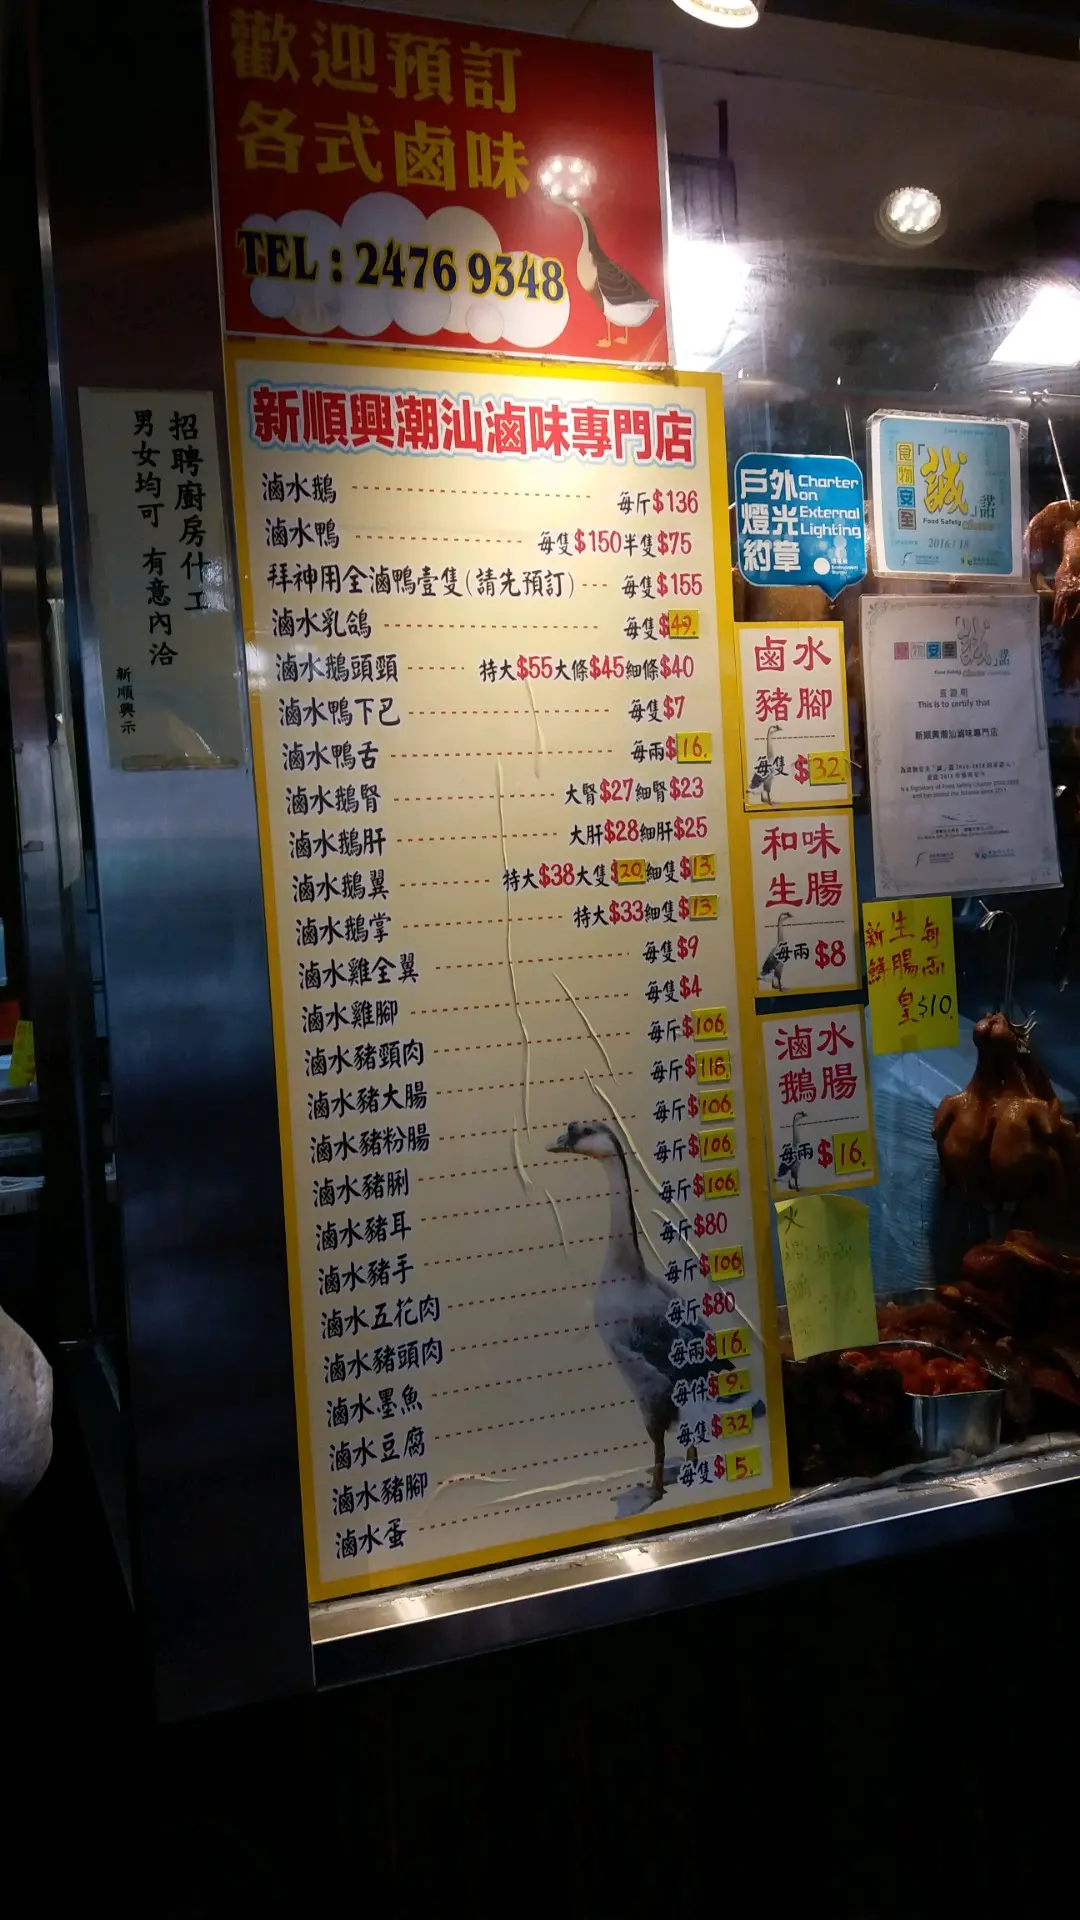 歡迎預訂
各式鹵味
TEL : 2476 9348
招聘廚房什工
男女均可 有意內洽
新順興示
新順興潮汕滷味專門店
滷水鵝 每斤$136
滷水鴨 每隻$150半隻$75
拜神用全滷鴨壹隻(請先預訂) 每隻$155
滷水乳鴿 每隻$49.
滷水鵝頭頸 特大$55大條$45細條$40
滷水鴨下巴 每隻$7
滷水鴨舌 每兩$16.
滷水鵝腎 大腎$27細腎$23
滷水鵝肝 大肝$28細肝$25
滷水鵝翼 特大$38大隻$20.細隻$13.
滷水鵝掌 特大$33細隻$13.
滷水雞全翼 每隻$9
滷水雞腳 每隻$4
滷水豬頸肉 每斤$106.
滷水豬大腸 每斤$118.
滷水豬粉腸 每斤$106.
滷水豬脷 每斤$106.
滷水豬耳 每斤$106.
滷水豬手 每斤$80
滷水五花肉 每斤$106.
滷水豬頭肉 每斤$80
滷水墨魚 每兩$16.
滷水豆腐 每件$9.
滷水豬腳 每隻$32
滷水蛋 每隻$5.
戶外
燈光
約章
Charter
on
External
Lighting
食物安全
「誠」諾
Food Safety Charter
2016/18
鹵水
豬腳
每隻 $32.
和味
生腸
每兩 $8
滷水
鵝腸
每兩 $16.
新鮮
生腸皇
每兩
$10.
食物安全「誠」諾
Food Safety Charter
茲證明
This is to certify that
新順興潮汕滷味專門店